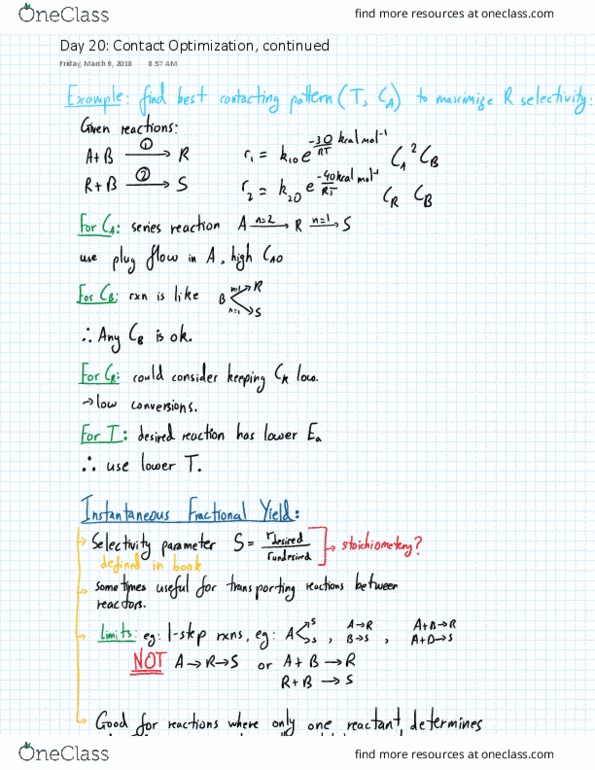 OneClass
find more resources at oneclass.com
Day 20: Contact Optimization, continued
Friday, March 9, 2018 8:57 AM
Example: find best contacting pattern (T, C_A) to maximize R selectivity:
Given reactions:
A+B —①→ R r₁ = k₁₀ e^(-30 kcal mol⁻¹/RT) C_A² C_B
R+B —②→ S r₂ = k₂₀ e^(-40 kcal mol⁻¹/RT) C_R C_B
For C_A: series reaction A —n=2→ R —n=1→ S
use plug flow in A, high C_A0
For C_B: rxn is like B < n=1 R n=1 S
∴ Any C_B is ok.
For C_R: could consider keeping C_R low.
→ low conversions.
For T: desired reaction has lower Ea
∴ use lower T.
Instantaneous Fractional Yield:
→ Selectivity parameter S = r_desired / r_undesired → stoichiometry?
defined in book
→ sometimes useful for transporting reactions between
reactors.
→ Limits: eg: 1-step rxns, eg: A < S S , A→R B→S , A+B→R A+D→S
NOT A→R→S or A+B → R
R+B → S
Good for reactions where only one reactant determines
OneClass
find more resources at oneclass.com